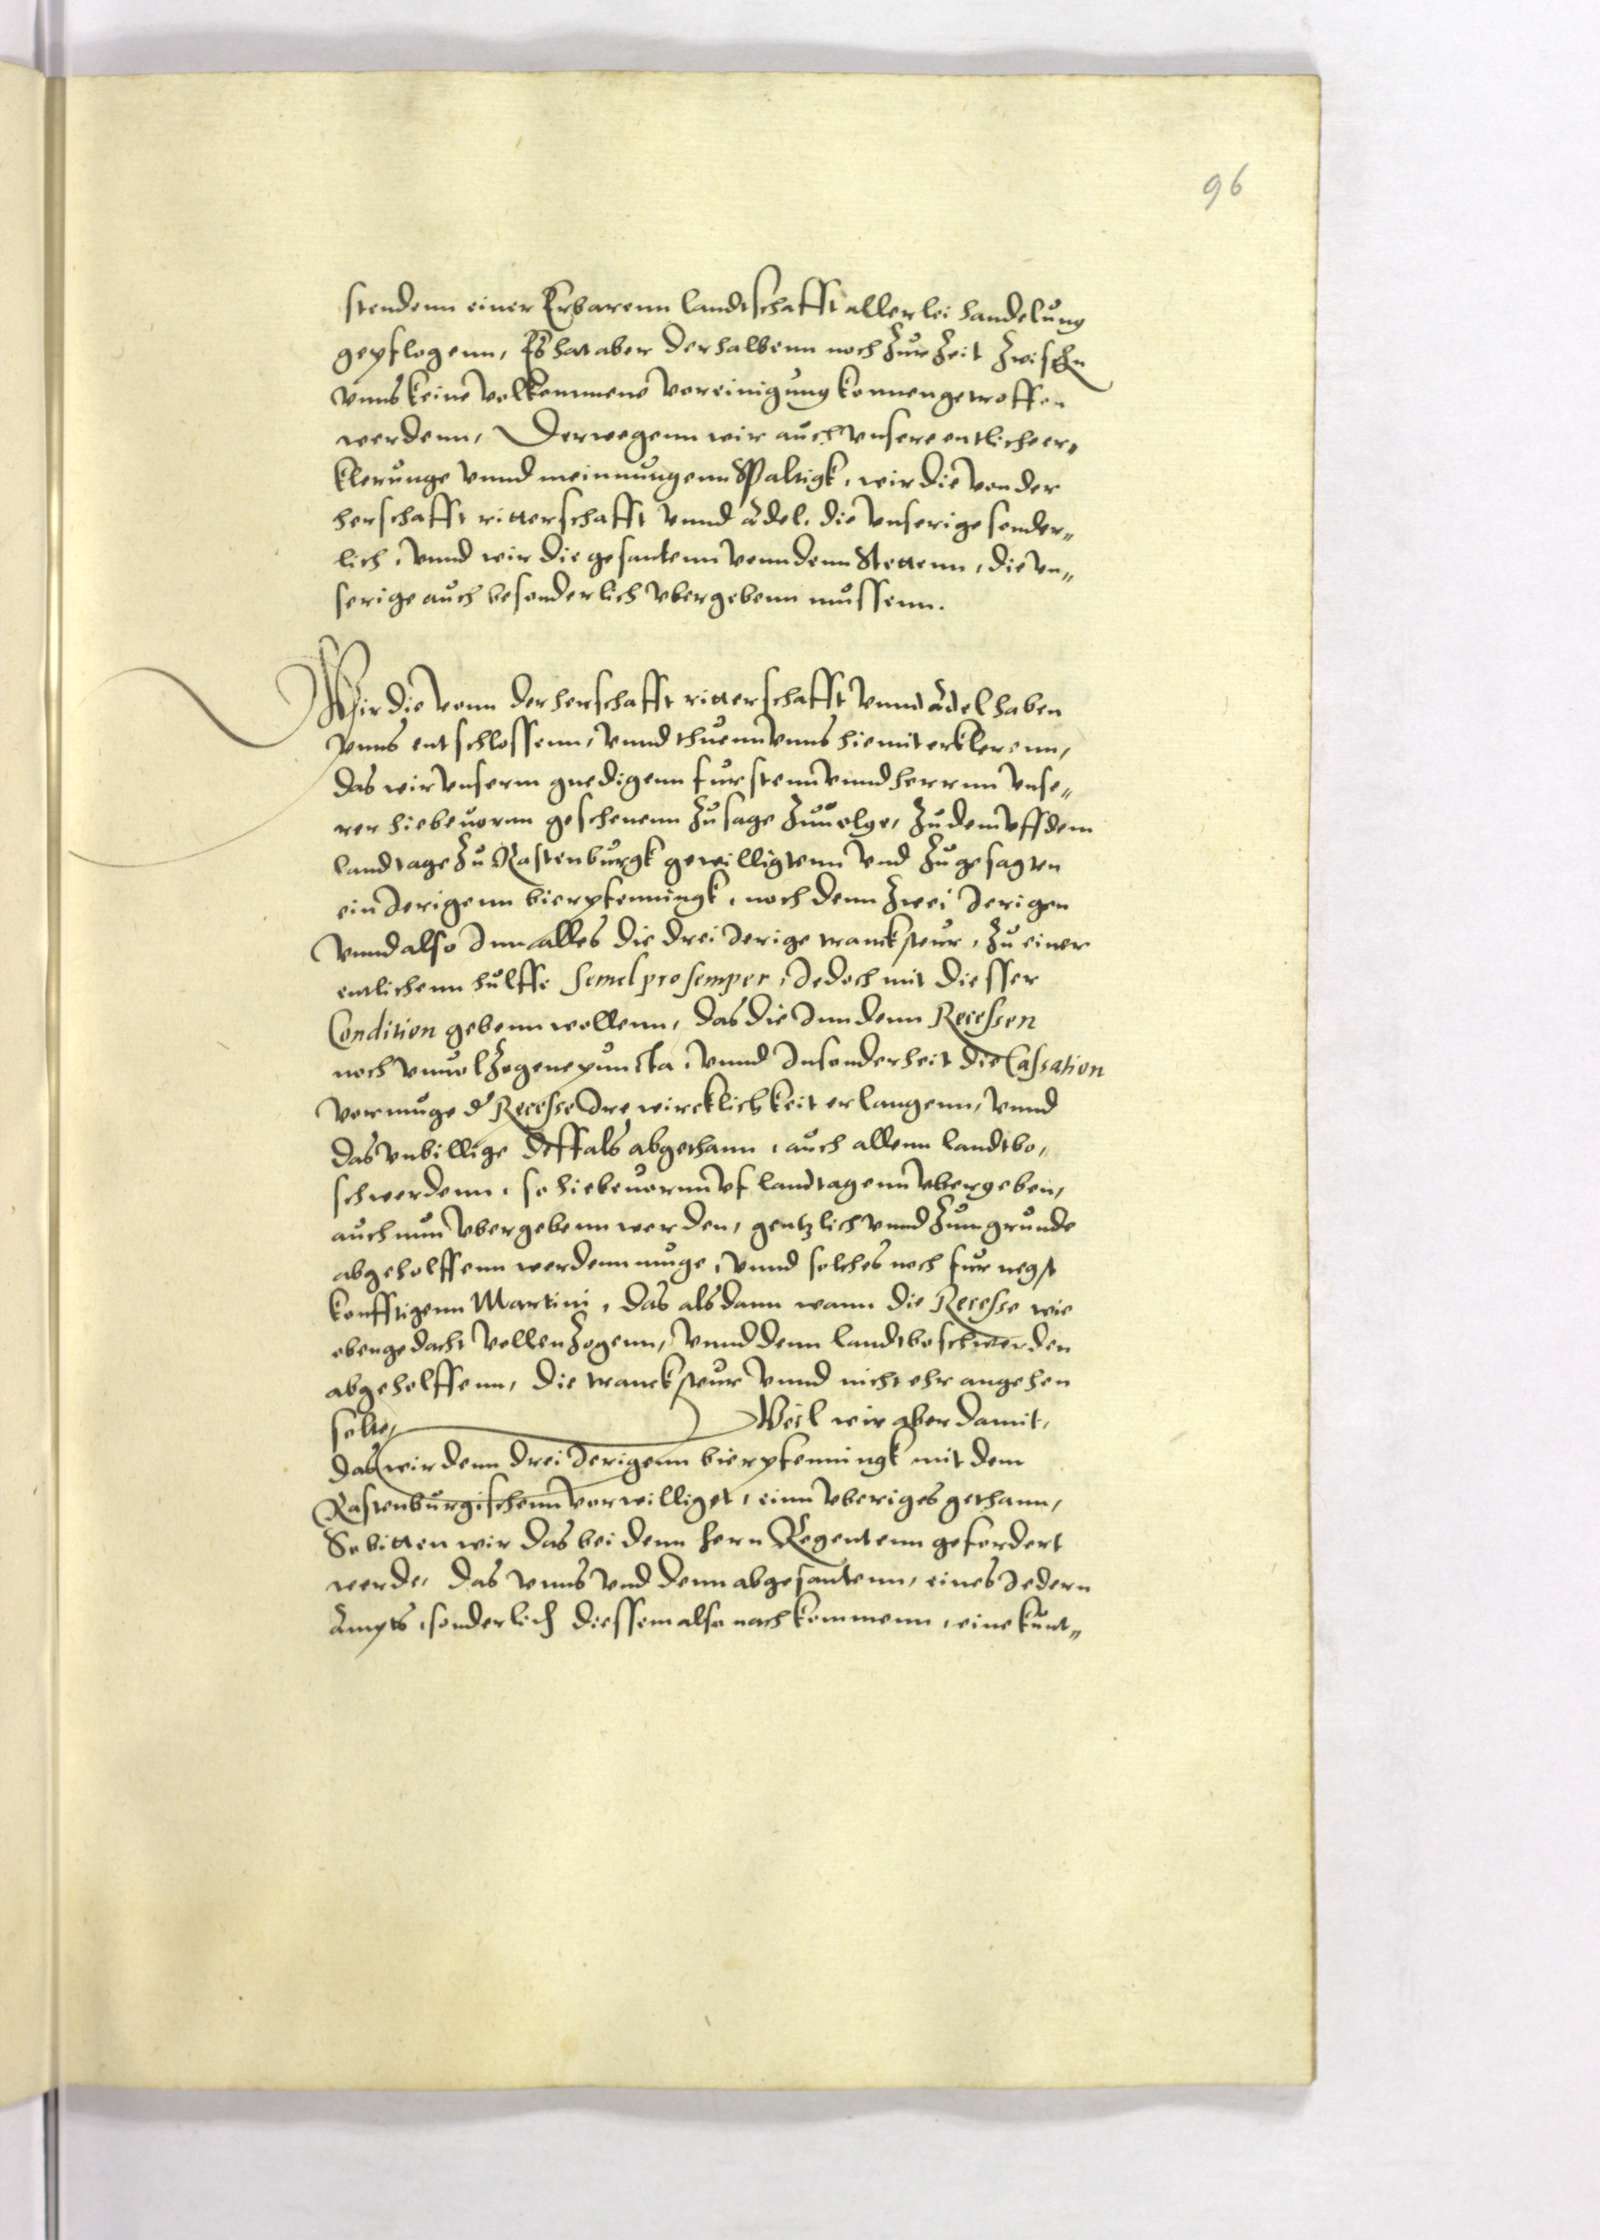 96
stendenn einer Erbarenn landtschafft allerlei handelung
gepflogenn, Es hat aber derhalbenn noch zur Zeit zwischen
vnns keine volkommene vereinigung konnen getroffen
werdenn, Derwegenn wir auch vnsere entliche er„
klerunge vnnd meinnungenn Spaltigk, wir die von der
herschafft ritterschafft vnnd Adel, die vnserige sonder„
lich, vnnd wir die gesantenn vonn denn Stettenn, die vn„
serige auch besonderlich vbergebenn mussenn.
Wir die vonn der herschafft ritterschafft vnnd Adel haben
vnns entschlossenn, vnnd thuenn vnns hiemit erklerenn,
das wir vnserm gnedigenn furstenn vnnd herrnn vnse„
rer hiebeuornn geschenenn zusage zuuolge, zu dem vff dem
landtage zu Rastenburgk gewilligtenn vnd zugesagten
ein Jerigenn bierpfenningk, noch denn zwei Jerigen
vnnd also Inn alles die drei Jerige tranksteur, zu einer
entlichenn hulffe semel pro semper, Jedoch mit diesser
Condition gebenn wollenn, das die Inn denn Recessen
noch vnuolzogene puncta, vnnd Insonderheit die Cassation
vermuge d' Recesse Ire wircklichkeit erlangenn, vnnd
das vnbillige desfals abgethann, auch allenn landtbe„
schwerdenn, so hiebeuornn vf landtagenn vbergeben,
auch nun vbergebenn werden, gentzlich vnnd zum grunde
abgeholffenn werdenn muge, vnnd solches noch fur negst
konfftigenn Martini, das alsdann wann die Recesse wie
obengedacht vollenzogenn, vnnd denn landtbeschwerden
abgeholffenn, die tranksteur vnnd nicht ehr angehen
solte, Weil wir aber damit,
das wir denn drei Jerigenn bierpfenningk mit dem
Rastenburgischenn vorwilliget, einn vberiges gethann,
So bitten wir das bei denn hern Regentenn gefordert
werde, das vnns vnd denn abgesantenn, eines Jedern
Ampts, sonderlich diessem also nachkommenn, eine kunt„